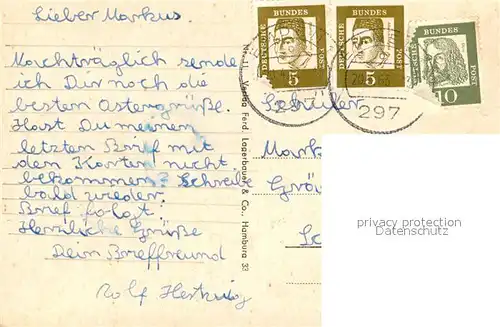 Lieber Markus.
Nachträglich sende
ich Dir noch die
besten Ostergrüße.
Hast Du meinen
letzten Brief mit
den Karten nicht
bekommen? Schreibe
bald wieder.
Brief folgt.
Herzliche Grüße
Dein Brieffreund
Rolf
Verlag Ferd. Lagerbauer & Co., Hamburg 33
DEUTSCHE BUNDES POST
5
DEUTSCHE BUNDES POST
5
DEUTSCHE BUNDES POST
10
297
Mark
privacy protection
Datenschutz